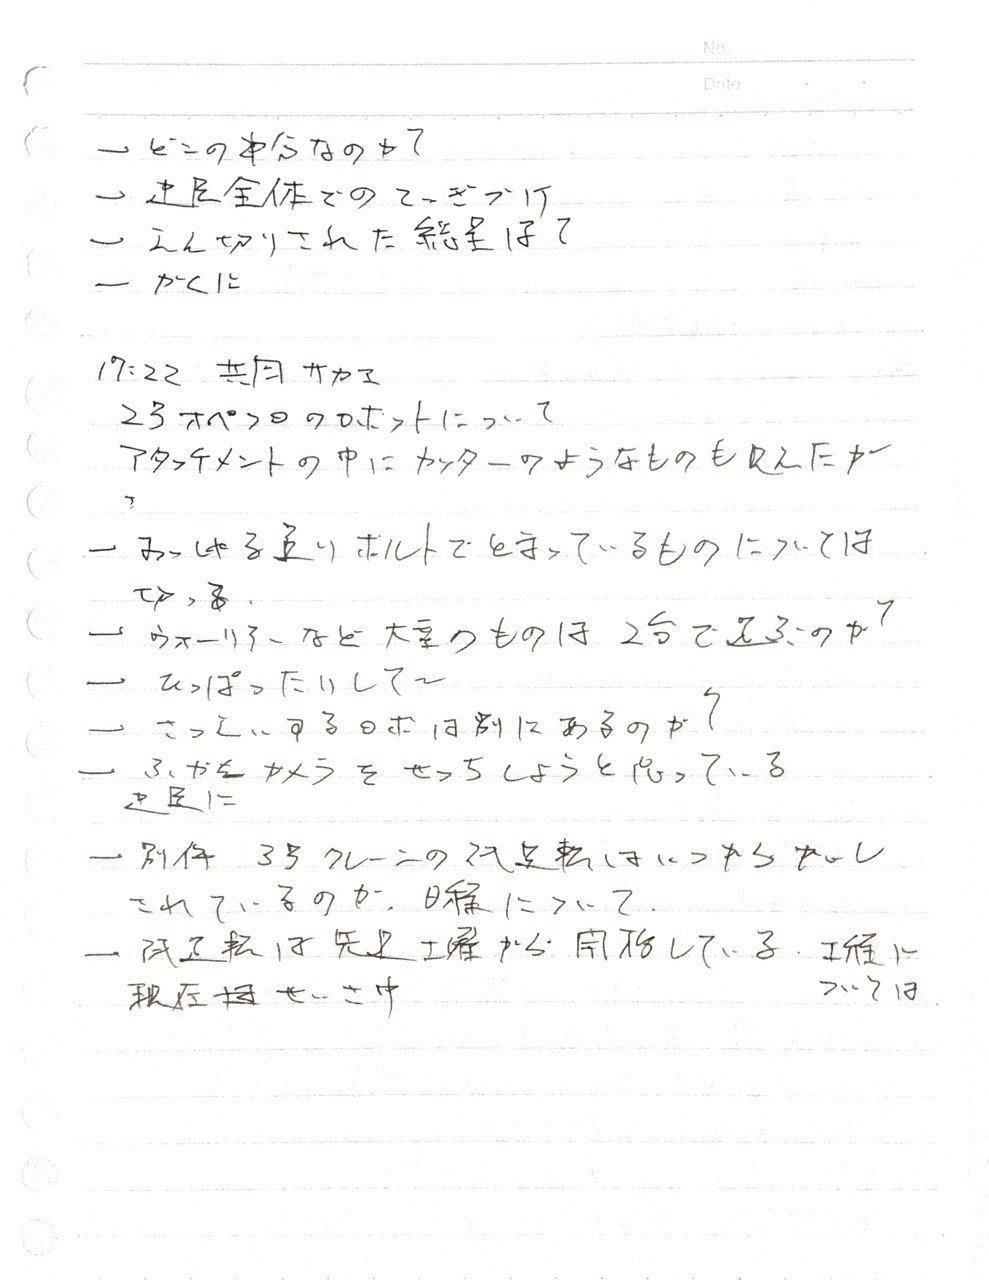 No.
Date
ー どこの部分なのか?
ー 建屋全体での てーぎづけ
ー えん切りされた 総量は?
ー かくに
17:22 共同 サカエ
23オペフロのロボットについて
アタッチメントの中にカッターのようなものも見えたが
?
ー おっしゃる通り ボルトでとまっているものについては
切っる.
ー ウォーリアーなど 大量のものは 2台で 運ぶのか?
ー ひっぱったりして〜
ー さつえいするロボは別にあるのか?
ー ふかんカメラを せっちしようと思っている
建屋に
ー 別件 3号クレーンの 試運転はいつから かいし
されているのか. 日程について.
ー 試運転は 先週 土曜から 開始している. 工程に
ついては
現在 せいさ中